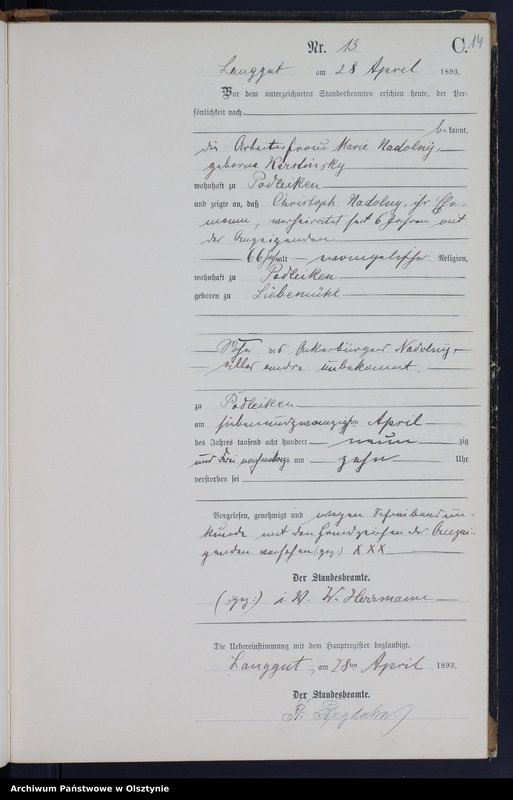 Nr. 13 C. 14
Langgut am 28 April 1893.
Vor dem unterzeichneten Standesbeamten erschien heute, der Per-
sönlichkeit nach
bekannt,
die Arbeiterfrau Marie Nadolny,
geborne Kerstinsky
wohnhaft zu Podleiken
und zeigte an, daß Christoph Nadolny, ihr Ehe-
mann, verheiratet seit 6 Jahren mit
der Anzeigenden
66 Jahr alt evangelischer Religion,
wohnhaft zu Podleiken
geboren zu Liebemühl
Sohn des Ackerbürgers Nadolny,
alles andre unbekannt.
zu Podleiken
am siebenundzwanzigsten April
des Jahres tausend acht hundert neun zig
und drei nachmittags um zehn Uhr
verstorben sei
Vorgelesen, genehmigt und wegen Schreibensun-
kunde mit den Handzeichen der Anzei-
genden versehen (:gez:) XXX
Der Standesbeamte.
(:gez:) i. V. W. Herrmann
Die Uebereinstimmung mit dem Hauptregister beglaubigt.
Langgut, am 28ten April 1893.
Der Standesbeamte.
Bogdahn
Archiwum Państwowe w Olsztynie